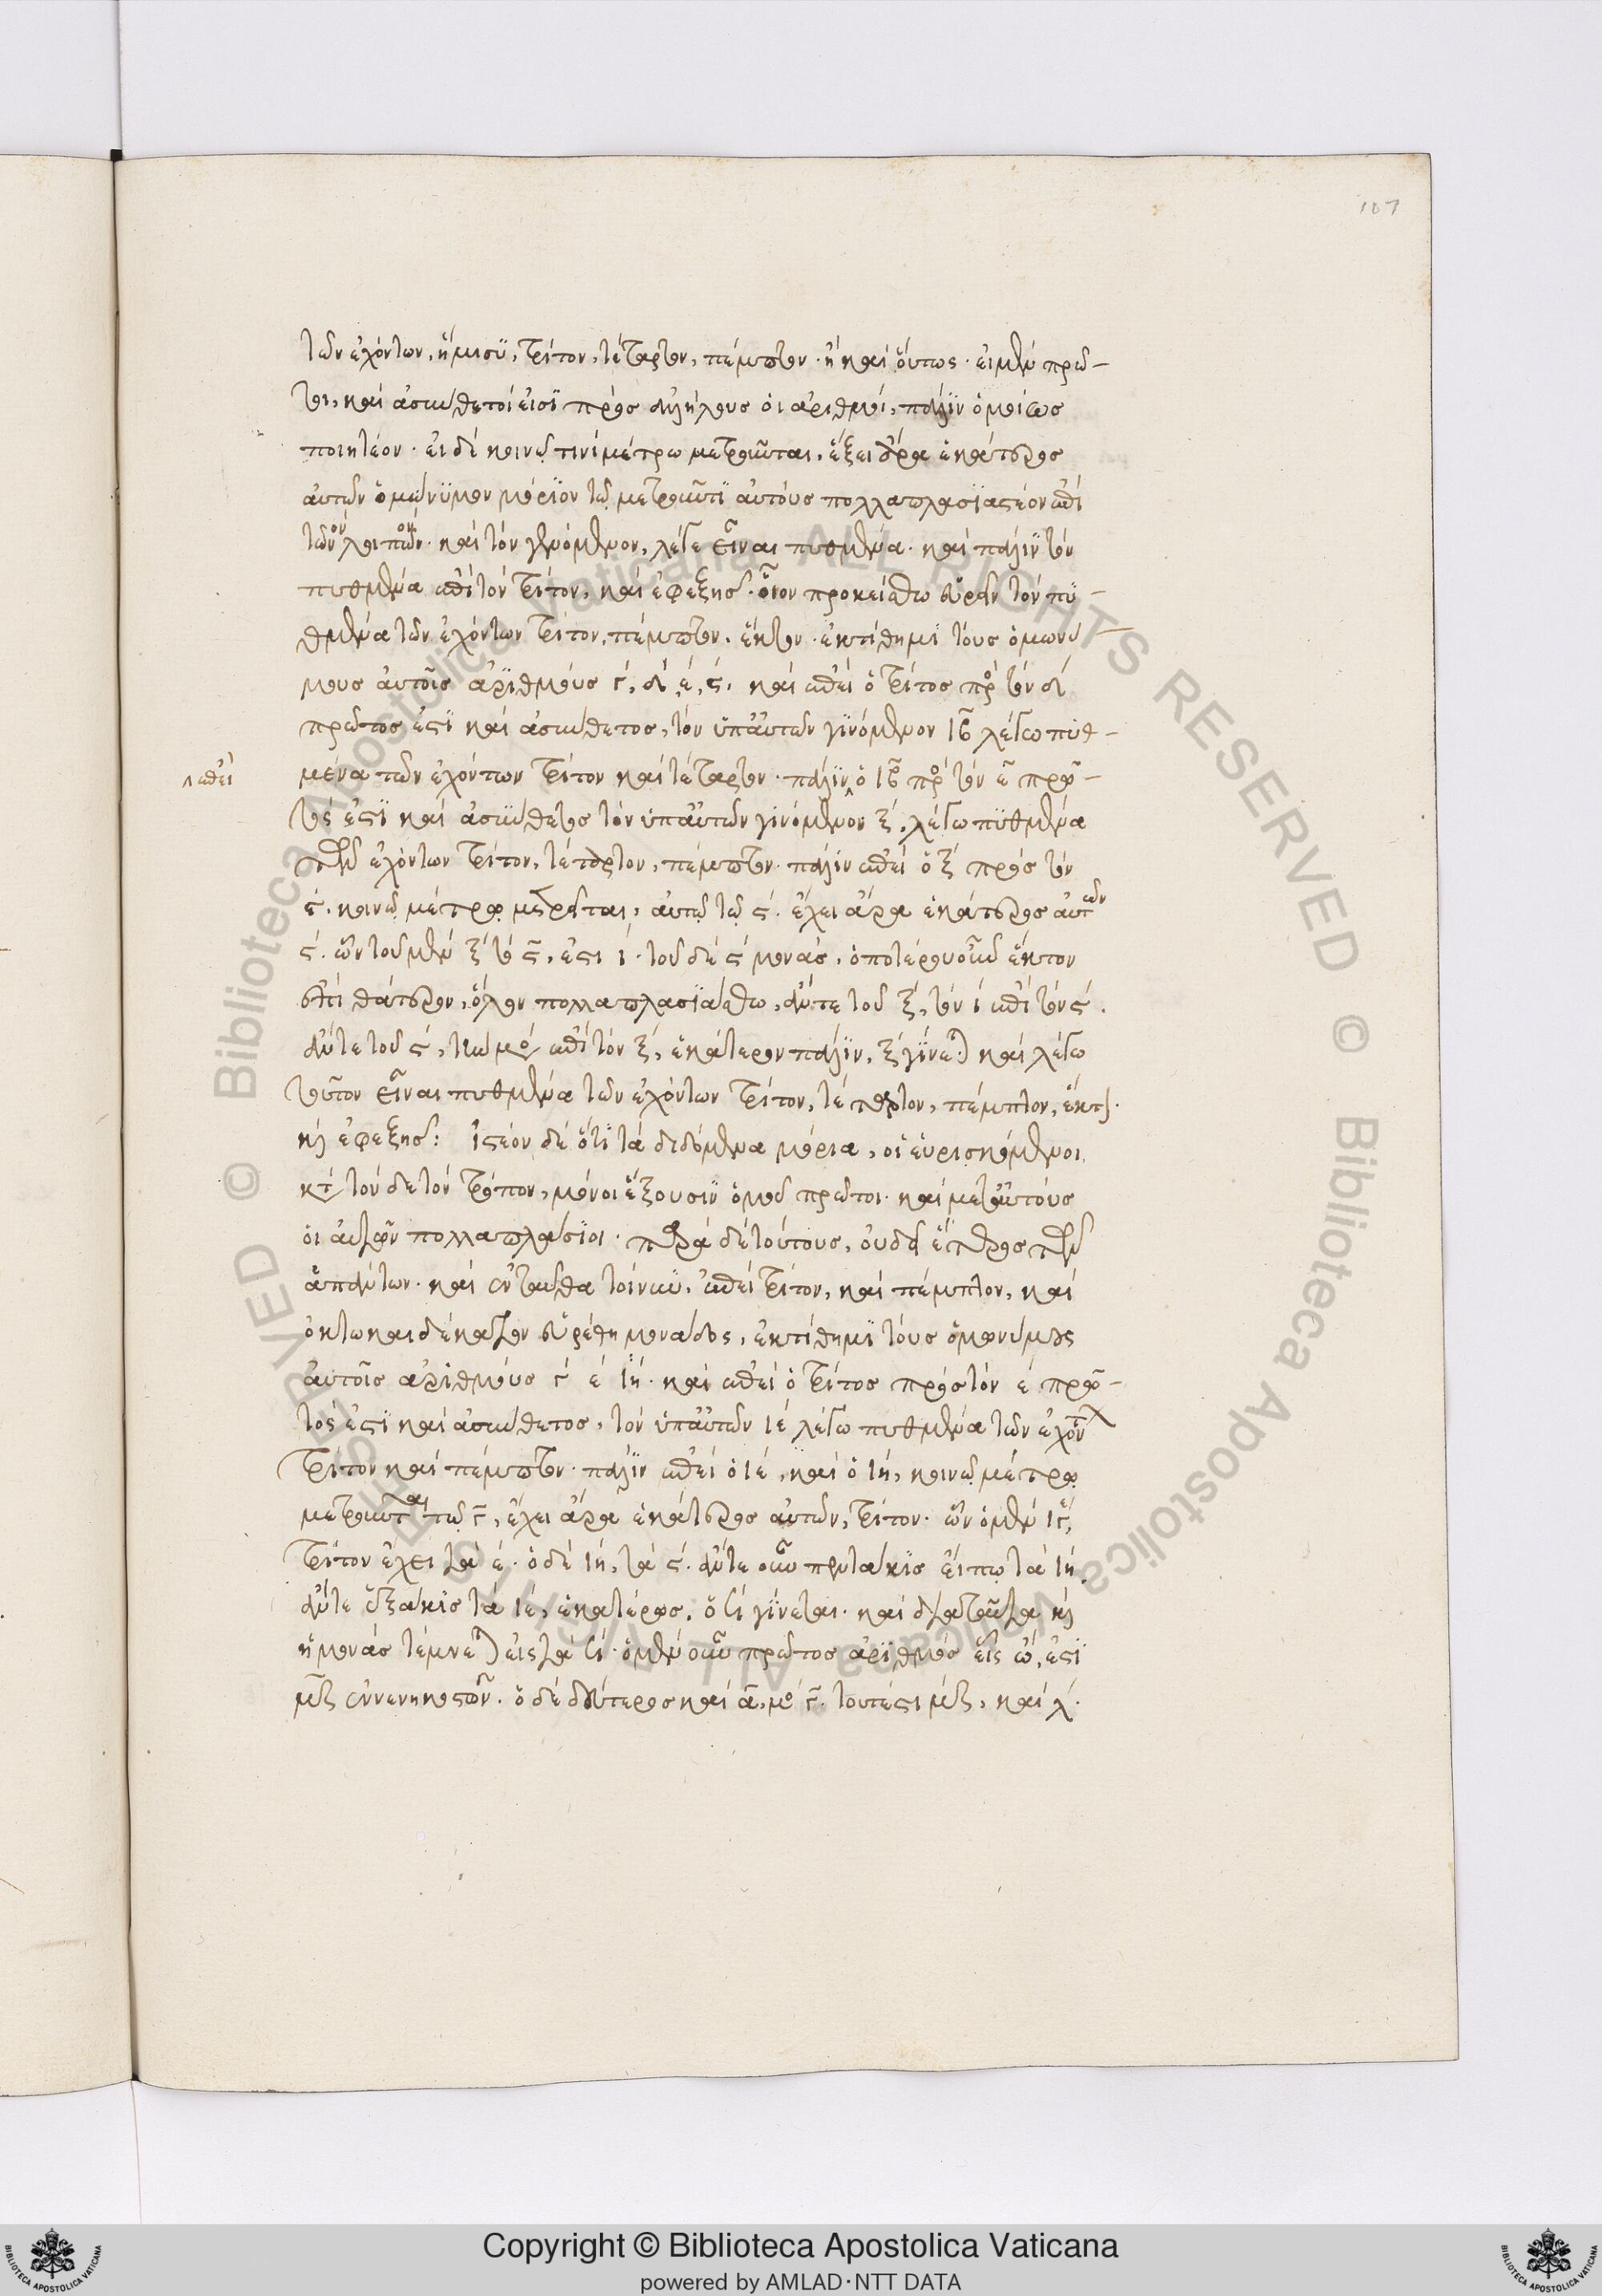 107
τῶν ἐχόντων, ἥμισυ, τρίτον, τέταρτον, πέμπτον· ἢ καὶ οὕτως· εἰ μὲν πρῶ-
τοι, καὶ ἀσύνθετοί εἰσι πρὸς ἀλλήλους οἱ ἀριθμοί, πάλιν ὁμοίως
ποιητέον· εἰ δὲ κοινῷ τινὶ μέτρω μετροῦνται, ἕξει ἄρα ἑκάτερος
αὐτῶν ὁμώνυμον μόριον τῷ μετροῦντι αὐτοὺς πολλαπλασιαστέον ἐπὶ
τὸν λοιπόν· καὶ τὸν γενόμενον, λέγε εἶναι πυθμένα· καὶ πάλιν τὸν
πυθμένα ἐπὶ τὸν τρίτον, καὶ ἐφεξῆς· οἷον προκείσθω εὑρεῖν τὸν πυ-
θμένα τῶν ἐχόντων τρίτον, πέμπτον, ἕκτον· ἐκτίθημι τοὺς ὁμωνύ-
μους αὐτοῖς ἀριθμοὺς γ, δ, ε, ς, καὶ ἐπεὶ ὁ τρίτος πρὸς τὸν δ
πρῶτος ἐστὶ καὶ ἀσύνθετος, τὸν ὑπ' αὐτῶν γινόμενον ιβ λέγω πυθ-
ἐπεὶ
μένα τῶν ἐχόντων τρίτον καὶ τέταρτον· πάλιν ὁ ιβ πρὸς τὸν ε πρῶ-
τός ἐστι καὶ ἀσύνθετος τὸν ὑπ' αὐτῶν γινόμενον ξ, λέγω πυθμένα
τῶν ἐχόντων τρίτον, τέταρτον, πέμπτον· πάλιν ἐπεὶ ὁ ξ πρὸς τὸν
ς, κοινῷ μέτρῳ μετρεῖται, αὐτῷ τῷ ς· ἔχει ἄρα ἑκάτερος αὐτῶν
ς· ὧν τοῦ μὲν ξ τὸ ς, ἐστι ι· τοῦ δὲ ς μονάς, ὁποτέρου οὖν ἕκτον
ἐπὶ θάτερον, ὅλον πολλαπλασιάσθω, ἄν τε τοῦ ξ, τὸν ι ἐπὶ τὸν ς.
ἄν τε τοῦ ς, τὴν μο ἐπὶ τὸν ξ, ἑκάτερον πάλιν, ξ γίνεται καὶ λέγω
τοῦτον εἶναι πυθμένα τῶν ἐχόντων τρίτον, τέταρτον, πέμπτον, ἕκτον·
καὶ ἐφεξῆς: ἰστέον δὲ ὅτι τὰ διδόμενα μόρια, οἱ εὑρισκόμενοι
κατὰ τόνδε τὸν τρόπον, μόνοι ἕξουσιν ὁμοῦ πρῶτοι· καὶ μετ' αὐτοὺς
οἱ αὐτῶν πολλαπλάσιοι· παρὰ δὲ τούτους, οὐδεὶς ἕτερος τῶν
ἁπάντων· καὶ ἐνταῦθα τοίνυν, ἐπεὶ τρίτον, καὶ πέμπτον, καὶ
ὀκτωκαιδέκατον εὑρέθη μονάδος, ἐκτίθημι τοὺς ὁμωνύμους
αὐτοῖς ἀριθμοὺς γ ε ιη· καὶ ἐπεὶ ὁ τρίτος πρὸς τὸν ε πρῶ-
τός ἐστι καὶ ἀσύνθετος, τὸν ὑπ' αὐτῶν ιε λέγω πυθμένα τῶν ἐχόντων
τρίτον καὶ πέμπτον· πάλιν ἐπεὶ ὁ ιε, καὶ ὁ ιη, κοινῷ μέτρῳ
μετροῦνται τῷ γ, ἔχει ἄρα ἑκάτερος αὐτῶν, τρίτον· ὧν ὁ μὲν ιε,
τρίτον ἔχει τὰ ε· ὁ δὲ ιη, τὰ ς· ἄν τε οὖν πεντάκις εἴπω τὰ ιη
ἄν τε ἑξάκις τὰ ιε, ἑκατέρως, ὁ ϟ γίνεται· καὶ διὰ ταῦτα καὶ
ἡ μονὰς τέμνεται εἰς τὰ ϟ· ὁ μὲν οὖν πρῶτος ἀριθμὸς εἷς ὤν, ἐστὶ
μζ ἐννενηκοστῶν· ὁ δὲ δεύτερος καὶ α, μο γ· τουτέστι μζ, καὶ λ